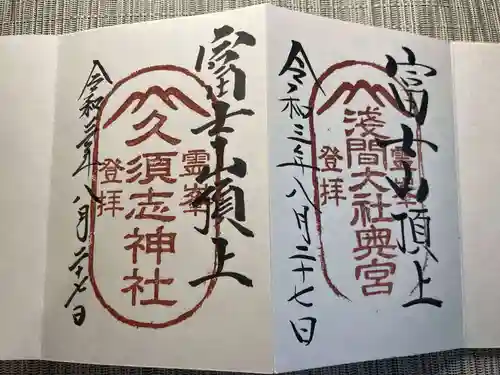 富士山頂上
浅間大社奥宮
霊峯
登拝
令和三年八月二十七日
富士山頂上
久須志神社
霊峯
登拝
令和三年八月二十七日